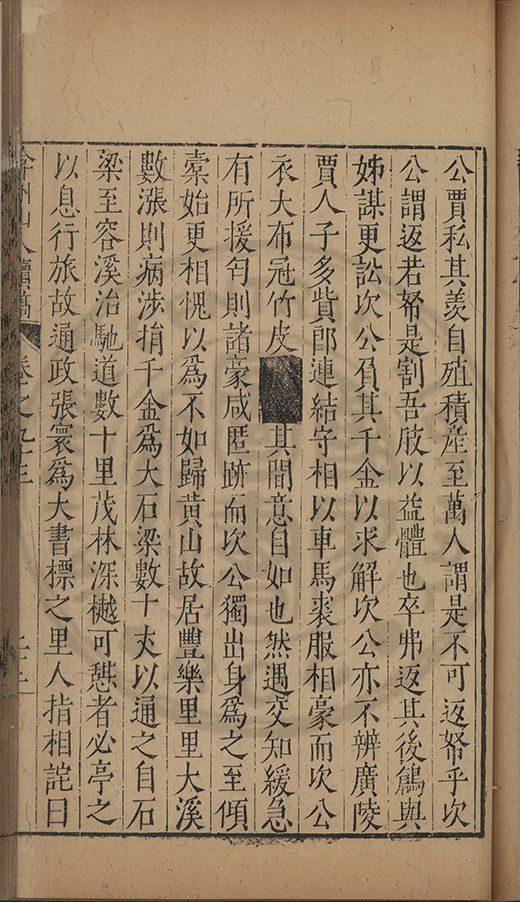 公賈私其羨自殖積產至萬人謂是不可返帑乎次
公謂返若帑是割吾肢以益體也卒弗返其後與
姊謀更訟次公負其千金以求解次公亦不辨廣陵
賈人子多貲郎連結守相以車馬裘服相豪而次公
衣大布冠竹皮其間意自如也然遇交知緩急
有所援匄則諸豪咸匿跡而次公獨出身爲之至傾
橐始更相愧以爲不如歸黃山故居豐樂里里大溪
數漲則病涉捐千金爲大石梁數十丈以通之自石
梁至容溪治馳道數十里茂林深樾可憩者必亭之
以息行旅故通政張寰爲大書標之里人指相詫曰
弇州山人續稿 卷之九十三